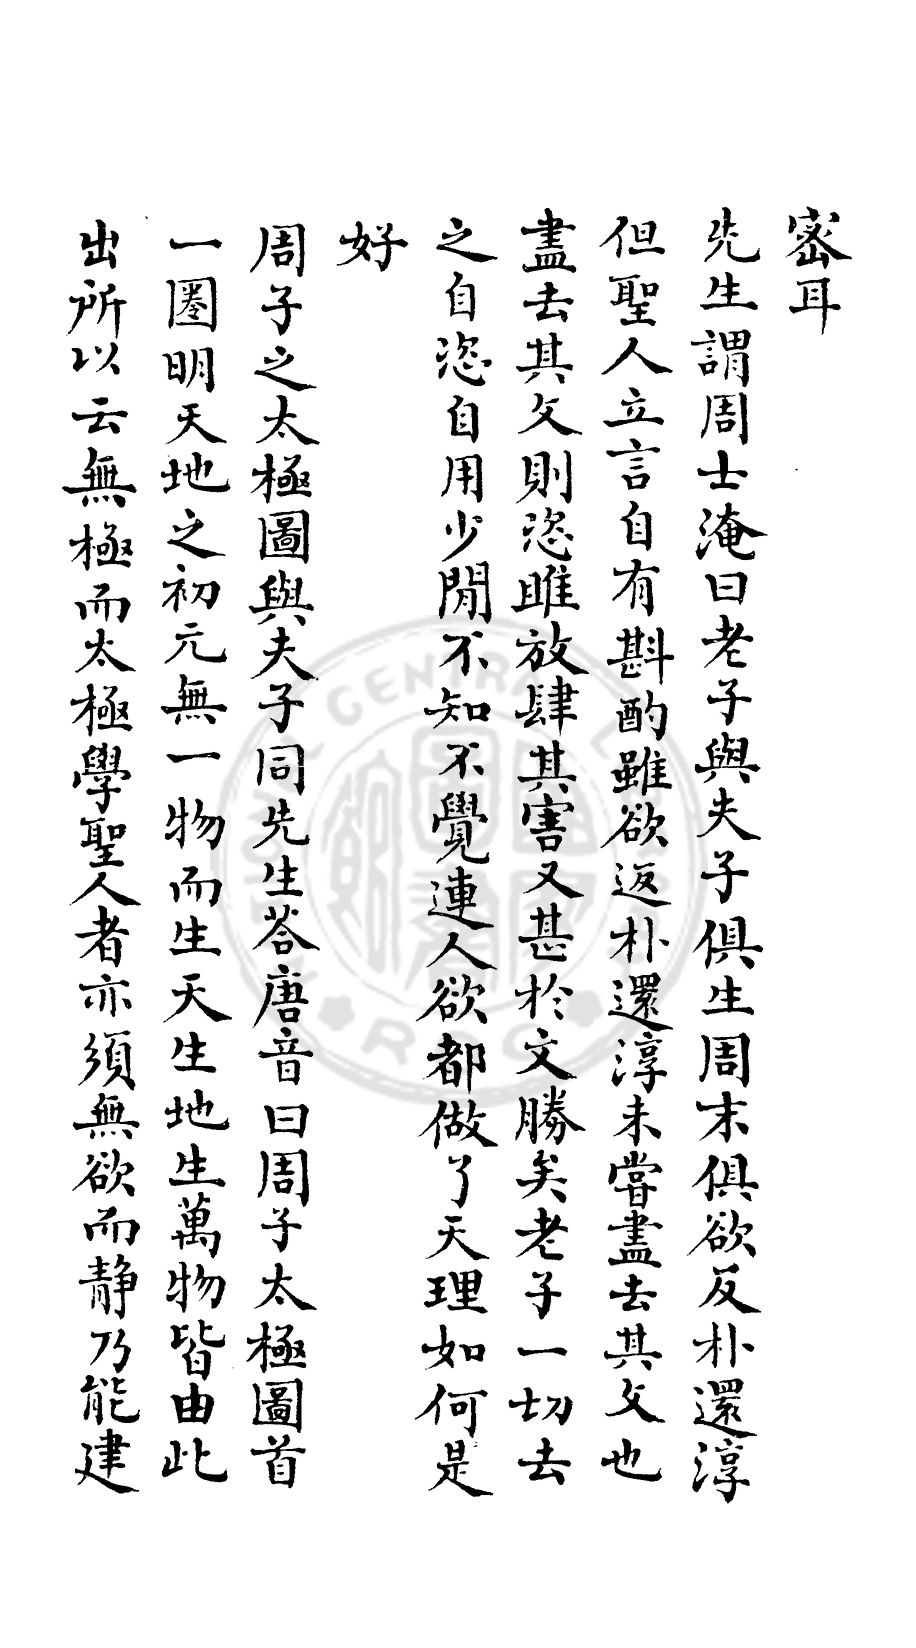 密耳
先生謂周士淹曰老子與夫子俱生周末俱欲反朴還淳
但聖人立言自有斟酌雖欲返朴還淳未嘗盡去其文也
盡去其文則恣睢放肆其害又甚於文勝矣老子一切去
之自恣自用少閒不知不覺連人欲都做了天理如何是
好
周子之太極圖與夫子同先生荅唐音曰周子太極圖首
一圈明天地之初元無一物而生天生地生萬物皆由此
出所以云無極而太極學聖人者亦須無欲而静乃能建
CENTRAL